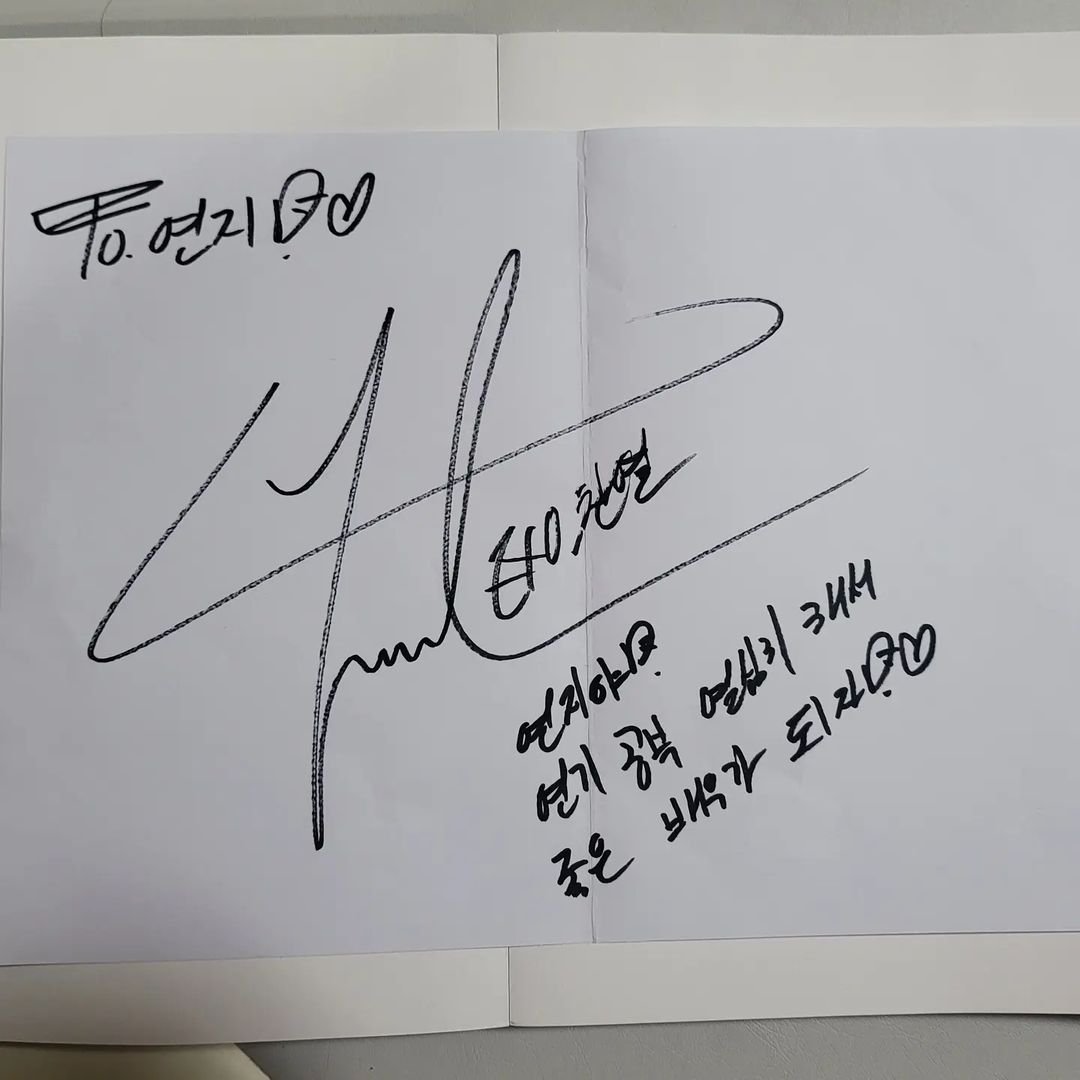 To. 연지!♡
EXO 찬열
연지야!
연기 공부 열심히 해서
좋은 배우가 되자!♡